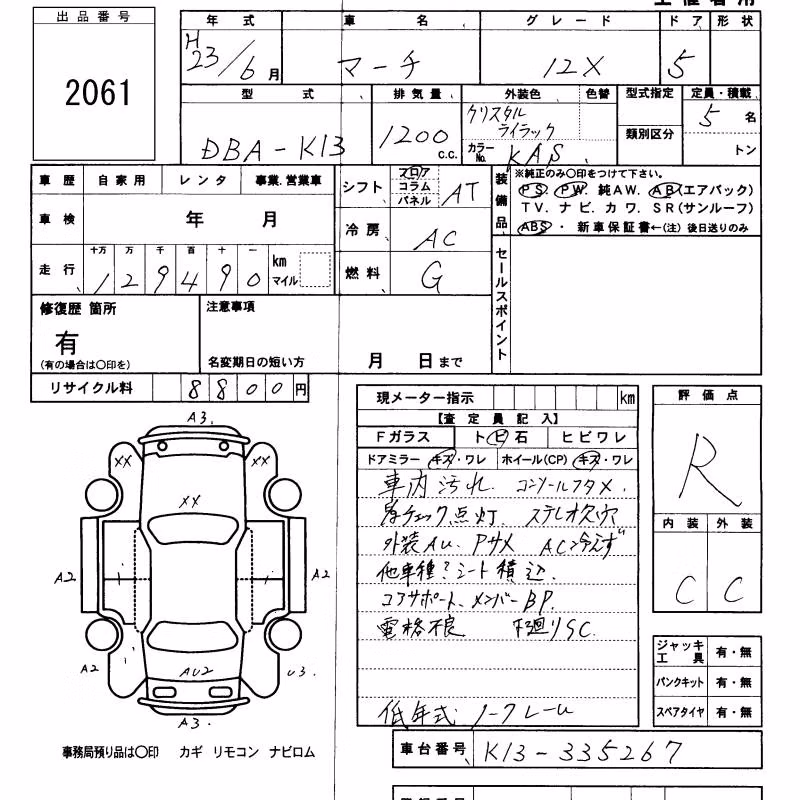 出品番号
2061
年式 車名 グレード ドア 形状
H23/6月 マーチ 12X 5
型式 排気量 外装色 色替 型式指定 定員・積載
DBA-K13 1200 c.c. クリスタル ライラック 類別区分 5名
カラーNo. KAS トン
車歴 自家用 レンタ 事業.営業車
シフト フロア コラム パネル AT
装備品 ※純正のみ〇印をつけて下さい。
PS. PW. 純AW. AB(エアバック)
TV. ナビ. カワ. SR(サンルーフ)
ABS・ 新車保証書←(注) 後日送りのみ
車検 年 月
冷房 AC
走行 十万 万 千 百 十 一 km マイル
129490
燃料 G
セールスポイント
修復歴 箇所 注意事項
有
(有の場合は〇印を) 名変期日の短い方 月 日まで
リサイクル料 8800円
現メーター指示 km
【査定員記入】
Fガラス トビ石 ヒビワレ
ドアミラー キズ・ワレ ホイール(CP) キズ・ワレ
車内汚れ. コンソールフタメ.
チェック点灯. ステレオ欠穴
外装AU. Pサメ AC冷えず
他車種?シート積込.
コアサポート、メンバーBP.
電格不良 下廻りSC.
低年式. ノークレーム
評価点
R
内装 外装
C C
ジャッキ 工具 有・無
パンクキット 有・無
スペアタイヤ 有・無
A3.
XX XX
XX
A2 A2
A2 AU2 U3.
A3.
事務局預り品は〇印 カギ リモコン ナビロム
車台番号 K13-335267